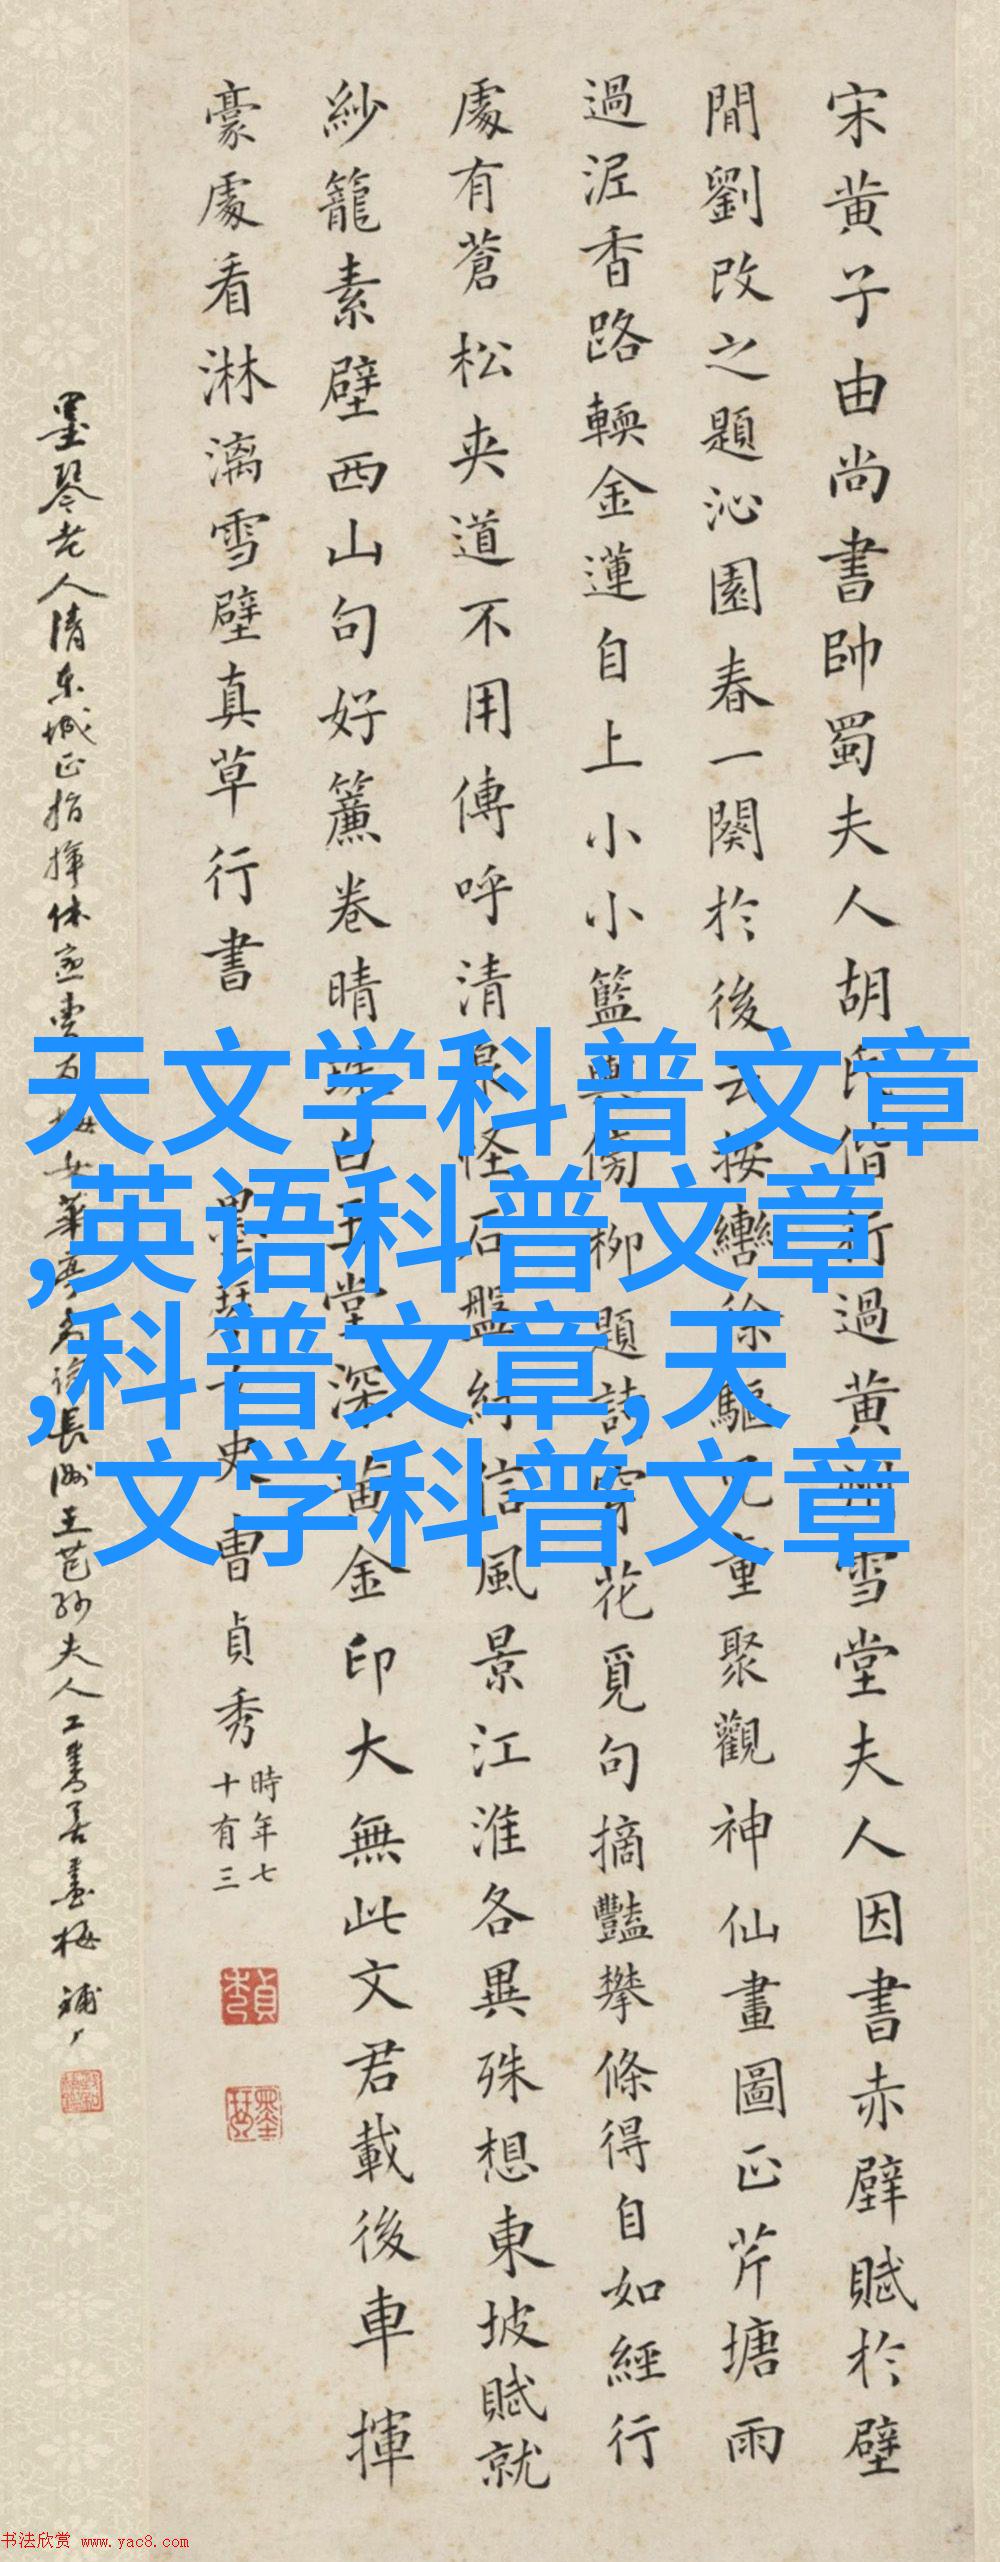 宋黄子由尚書帥蜀夫人胡氏偕行過黄州雪堂夫人因書赤壁賦於壁
間劉改之題沁園春一闋於後云按轡徐驅兒童聚觀神仙畫圖正芹塘雨
過泥香路輭金蓮自上小小籃輿傍柳題詩穿花覓句摘豔攀條得自如經行
處有蒼松夾道不用傳呼清泉怪石盤紆信風景江淮各異殊想東坡賦就
紗籠素壁西山句好簾卷晴珠白玉堂深黄金印大無此文君載後車揮
豪處看淋漓雪壁真草行書
墨琴女史曹貞秀
時年七
十有三
貞秀
墨琴
墨琴老人清東城正指揮休寧貢五梅女華亭長洲王芑孫夫人工書善畫梅
天文学科普文章
,英语科普文章
,科普文章,天
文学科普文章
书法欣赏 www.yac8.com